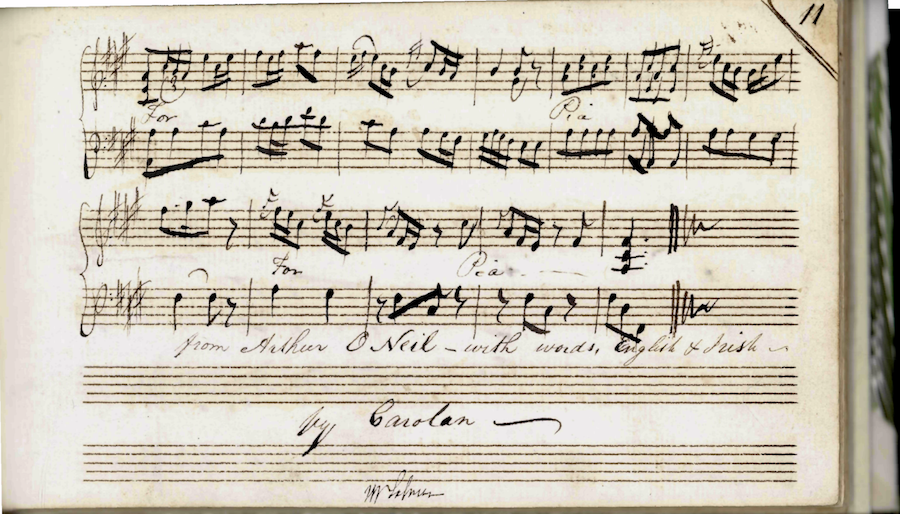 11
For Pia
For Pia
from Arthur O Neil - with words, English & Irish
by Carolan